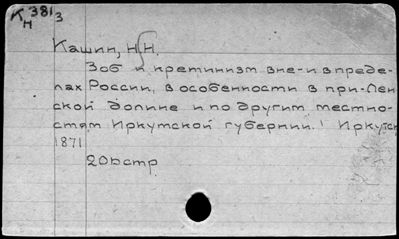 К 381
Н 3
Кашин, Н.Н.
Зоб и кретинизм вне- и в преде-
лах России, в особенности в при-Лен
ской долине и по другим местно-
стям Иркутской губернии. Иркутск
1871
206 стр